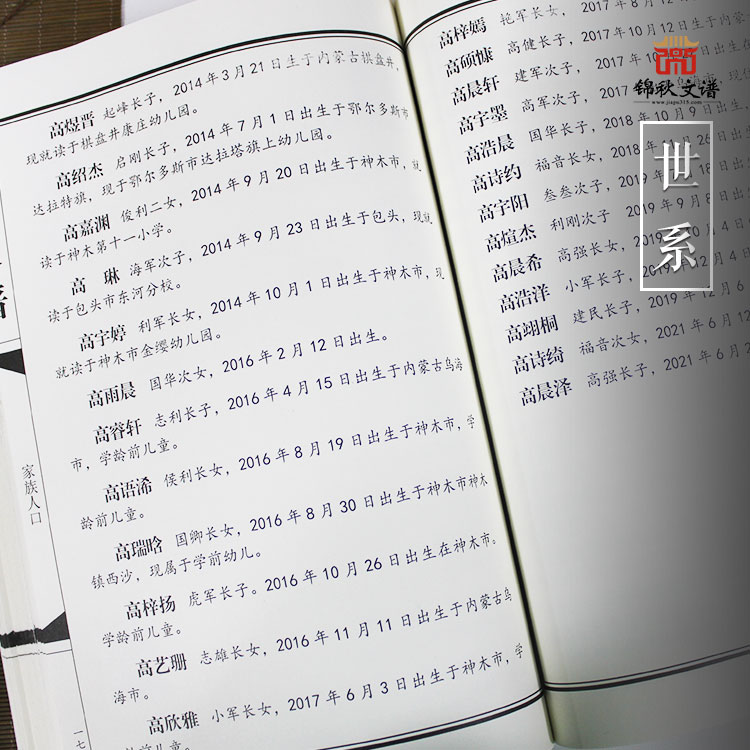 高煜晋 起峰长子，2014年3月21日生于内蒙古棋盘井，
现就读于棋盘井康庄幼儿园。
高绍杰 启刚长子，2014年7月1日出生于鄂尔多斯市
达拉特旗，现于鄂尔多斯市达拉塔旗上幼儿园。
高嘉渊 俊利二女，2014年9月20日出生于神木市，就
读于神木第十一小学。
高 琳 海军次子，2014年9月23日出生于包头，现就
读于包头市东河分校。
高宇婷 利军长女，2014年10月1日出生于神木市，现
就读于神木市金缨幼儿园。
高雨晨 国华次女，2016年2月12日出生。
高睿轩 志利长子，2016年4月15日出生于内蒙古乌海
市，学龄前儿童。
高语浠 侯利长女，2016年8月19日出生于神木市，学
龄前儿童。
高瑞晗 国卿长女，2016年8月30日出生于神木市神木
镇西沙，现属于学前幼儿。
高梓扬 虎军长子。2016年10月26日出生在神木市。
学龄前儿童。
高艺珊 志雄长女，2016年11月11日出生于内蒙古乌
海市。
高欣雅 小军长女，2017年6月3日出生于神木市，学
龄前儿童。
家族人口
一七
高梓嫣 艳军长女，2017年8月12日
高硕慷 高健长子，2017年10月12日出生于内蒙
高晨轩 建军次子，2017年10月
高宇墨 高军次子，2017
高浩晨 国华长子，2018年
高诗约 福音长女，2018年11月26日出生
高宇阳 叁叁次子，2019年
高煊杰 利刚次子 2019年9月8日出
高晨希 高强长女，2019年10月4日
高浩洋 小军长子，2019年12月4日
高翊桐 建民长子，2019年12月6
高诗绮 福音次女，2021年6月12
高晨泽 高强长子，2021年6月2
锦秋文谱
www.jiapu315.com
世系